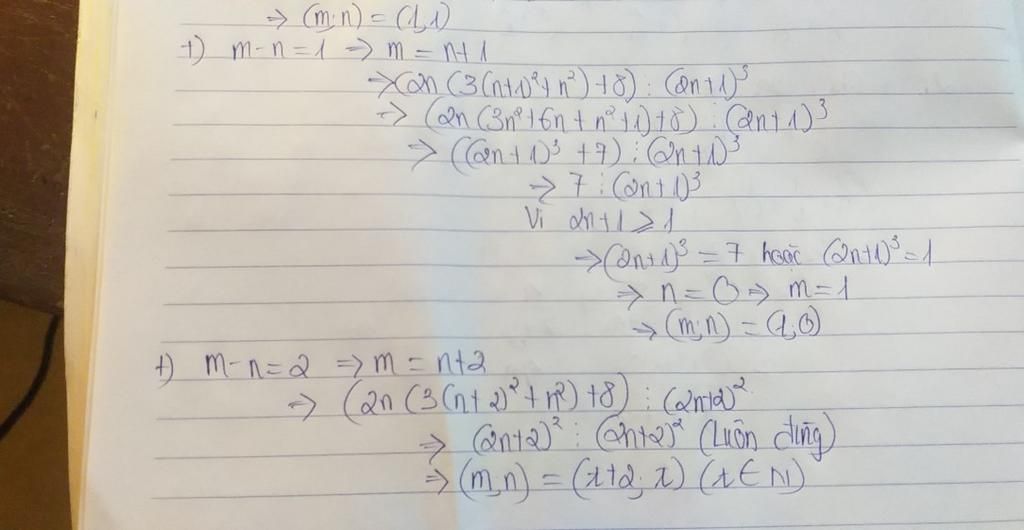 ⇒ (m;n) = (1,1)
+) m-n=1 ⇒ m = n+1
⇒ (2n (3(n+1)²+n²)+8) ⋮ (2n+1)³
⇒ (2n (3n²+6n+n²+1)+8) ⋮ (2n+1)³
⇒ ((2n+1)³ +7) ⋮ (2n+1)³
⇒ 7 ⋮ (2n+1)³
Vì 2n+1 ⩾ 1
⇒ (2n+1)³ = 7 hoặc (2n+1)³ = 1
⇒ n = 0 ⇒ m = 1
⇒ (m;n) = (1;0)
+) m-n=2 ⇒ m = n+2
⇒ (2n (3(n+2)²+n²)+8) ⋮ (2n+2)²
⇒ (2n+2)² ⋮ (2n+2)² (Luôn đúng)
⇒ (m,n) = (x+2; x) (x ∈ N)